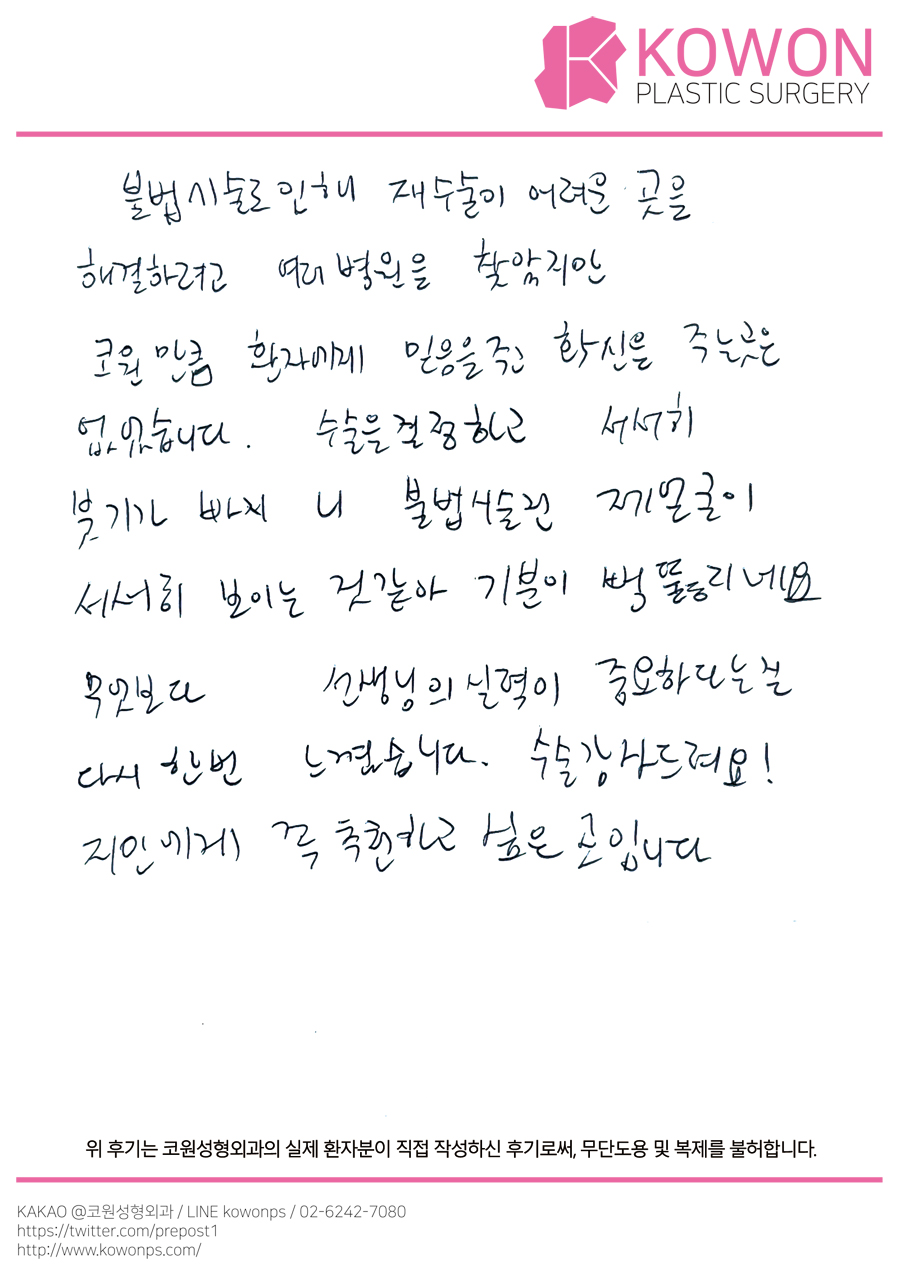 KOWON
PLASTIC SURGERY
불법시술로인해 재수술이 어려운 곳을
해결하려고 여러병원을 찾았지만
코원만큼 환자에게 믿음을주고 확신을 주는곳은
없었습니다. 수술을결정하고 서서히
붓기가 빠지니 불법시술된 제얼굴이
서서히 보이는 것같아 기분이 뻥뚫리네요
무엇보다 선생님의실력이 중요하다는걸
다시한번 느꼈습니다. 수술감사드려요!
지인에게 꼭추천하고 싶은 곳입니다
위 후기는 코원성형외과의 실제 환자분이 직접 작성하신 후기로써, 무단도용 및 복제를 불허합니다.
KAKAO @코원성형외과 / LINE kowonps / 02-6242-7080
https://twitter.com/prepost1
http://www.kowonps.com/